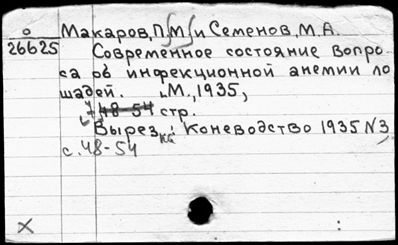 о Макаров, П. М. и Семенов, М.А.
26625 Современное состояние вопро
са об инфекционной анемии ло
шадей. М., 1935,
7 48-54 стр.
Вырезка: Коневодство 1935 N3,
с. 48-54
X :